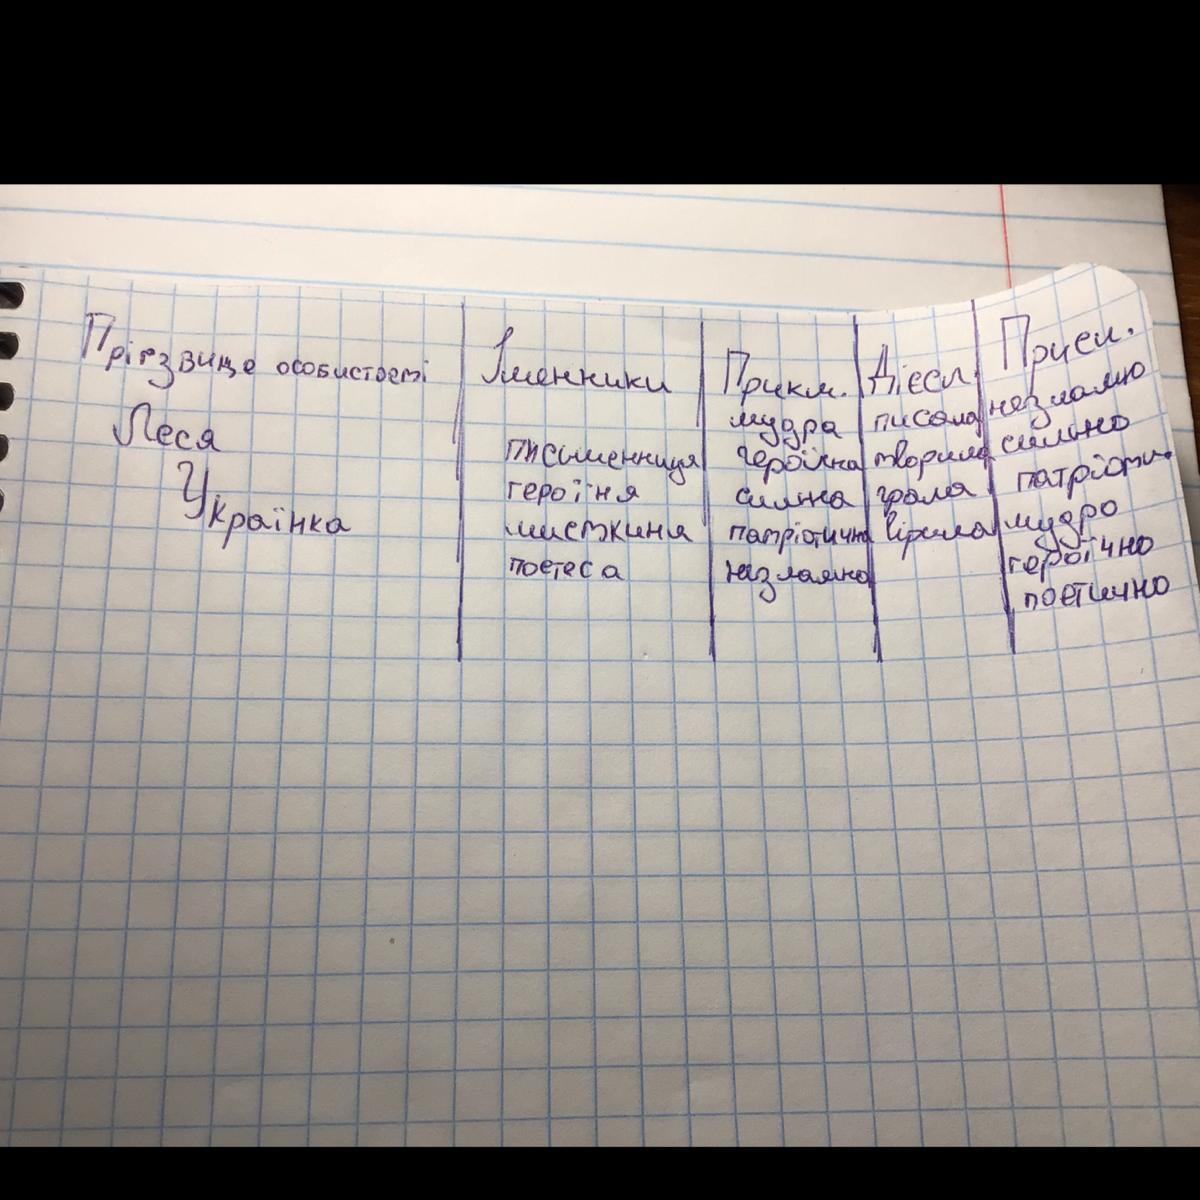 Прізвище особистості
Леся
Українка
Іменники
письменниця
героїня
мисткиня
поетеса
Прикм.
мудра
героїчна
сильна
патріотична
незламна
Дієсл
писала
творила
грала
вірила
Присл.
незламно
сильно
патріоти.
мудро
героїчно
поетично